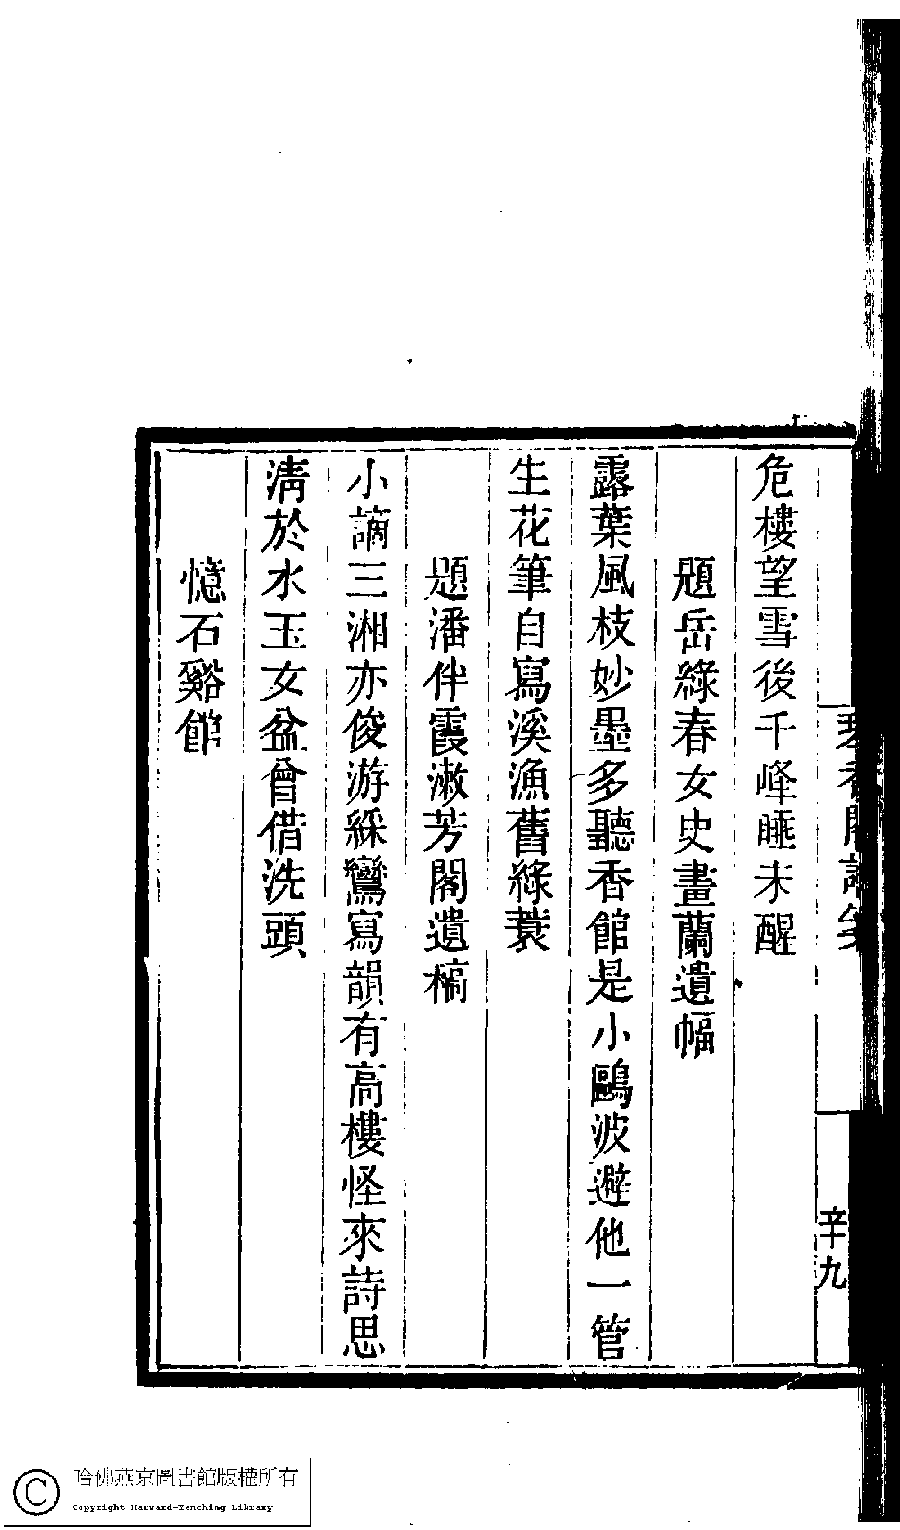 危樓望雪後千峰睡未醒
題岳綠春女史畫蘭遺幅
露葉風枝妙墨多聽香館是小鷗波避他一管
生花筆自寫溪漁舊綠蓑
題潘伴霞漱芳閣遺稿
小謫三湘亦俊游綵鸞寫韻有高樓怪來詩思
淸於水玉女盆曾借洗頭
憶石谿館
辛九
哈佛燕京圖書館版權所有
Copyright Harvard-Yenching Library